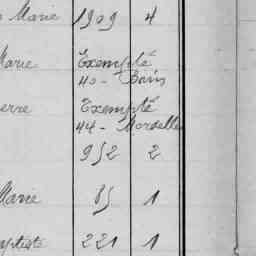 Marie 1909 4
Marie Exempté
40 - Bain
erre Exempté
44 - Mordelles
952 2
Marie 85 1
aptiste 221 1